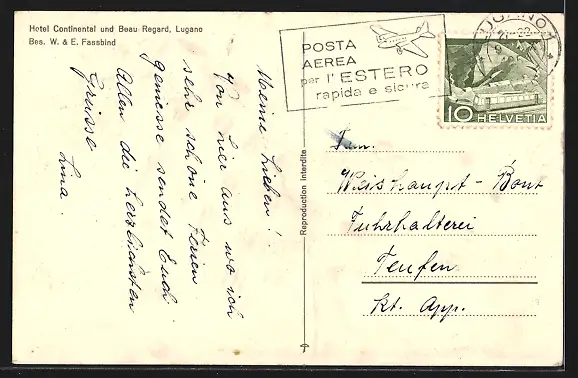 Hotel Continental und Beau Regard, Lugano
Bes. W. & E. Fassbind
Meine Lieben!
Von hier aus wo ich
sehr schöne Ferien
geniesse sendet Euch
Allen die herzlichsten
Grüsse
Lina.
Reproduction interdite
POSTA
AEREA
per l'ESTERO
rapida e sicura
10 HELVETIA
Fam.
Weishaupt - Bont
Fuhrhalterei
Teufen
Kt. App.